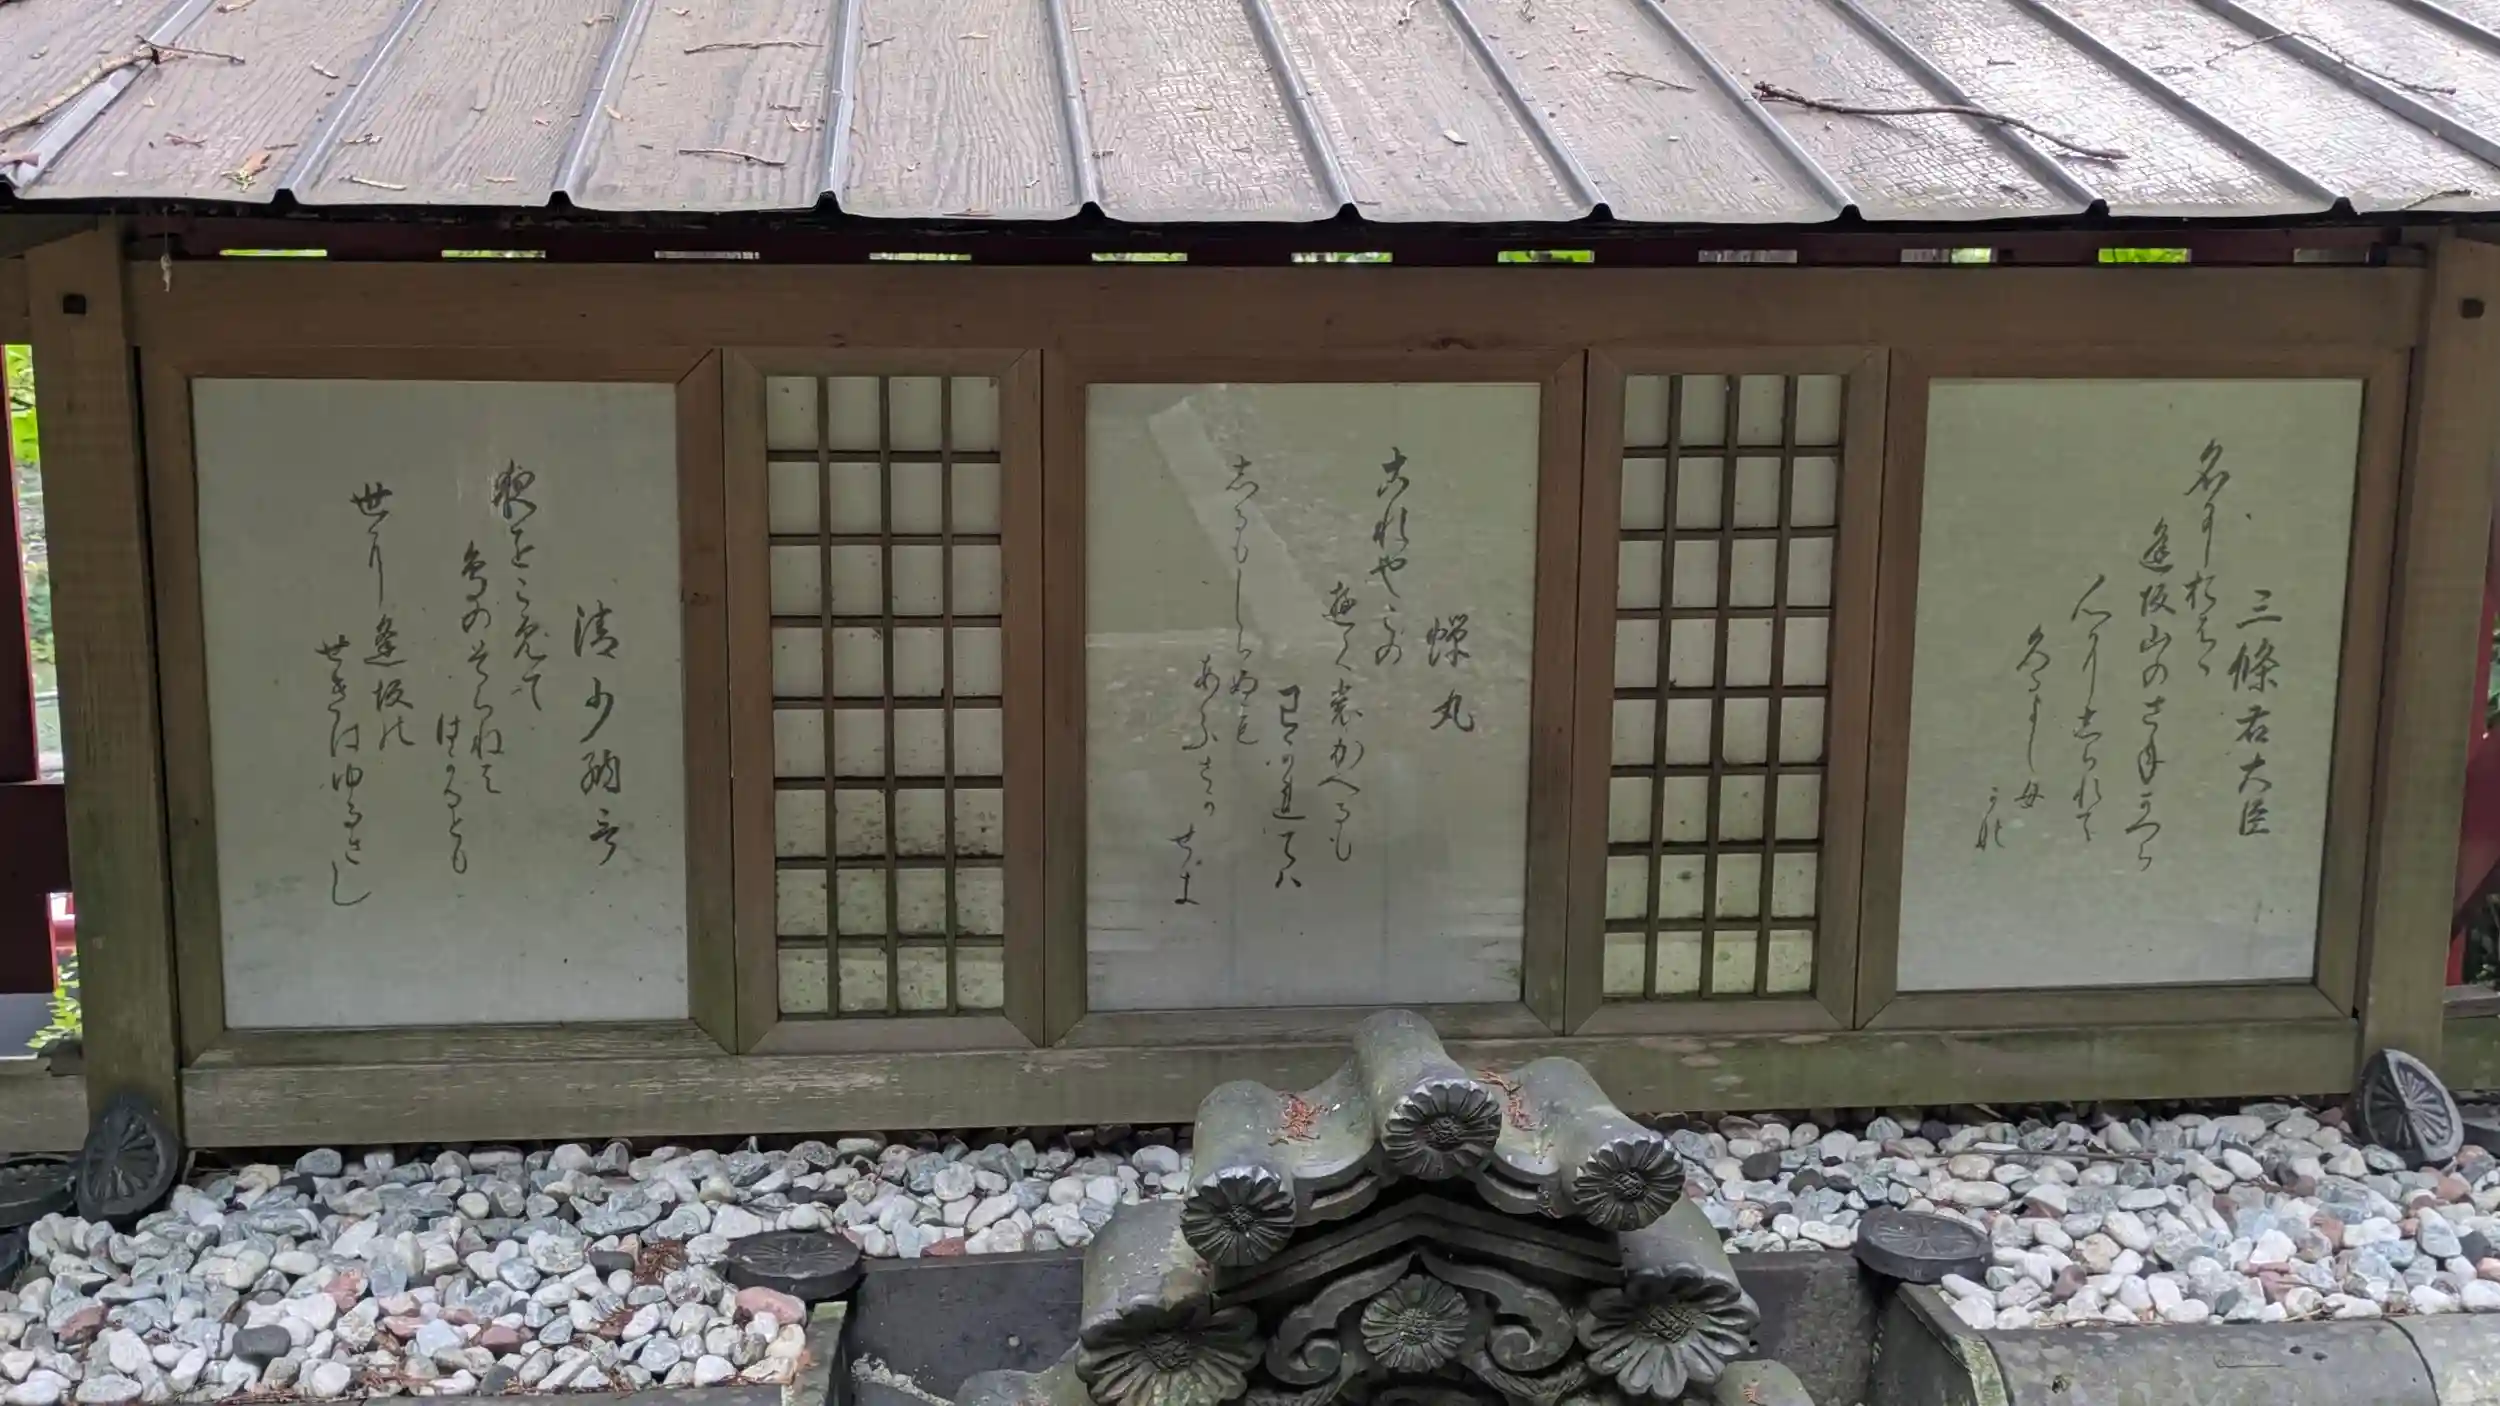 三條右大臣
名にし於はゝ
逢坂山のさねかつら
人にしられて
くるよし母
かな
蝉丸
古れやこの
遊く裳かへるも
王か連てハ
志るもしらぬも
あふさか
せき
清少納言
夜をこめて
鳥のそらねは
はかるとも
世に逢坂の
せきはゆるさし